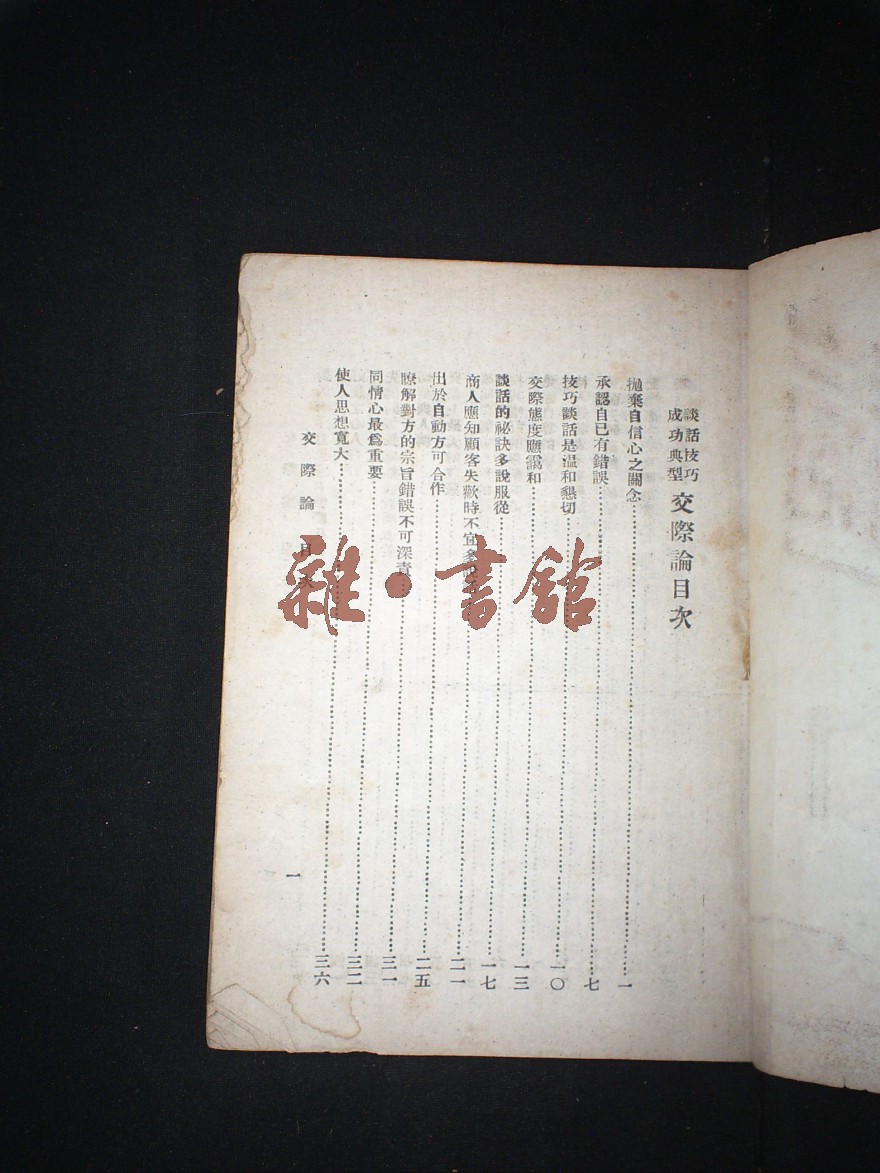 談話技巧
成功典型
交際論目次
拋棄自信心之關念…一
承認自已有錯誤…七
技巧談話是温和懇切…一〇
交際態度應靄和…一三
談話的祕訣多說服從…一七
商人應知顧客失歡時不宜…二一
出於自動方可合作…二五
瞭解對方的宗旨錯誤不可深責…三一
同情心最爲重要…三二
使人思想寬大…三六
交際論 目次
一
雜·書館